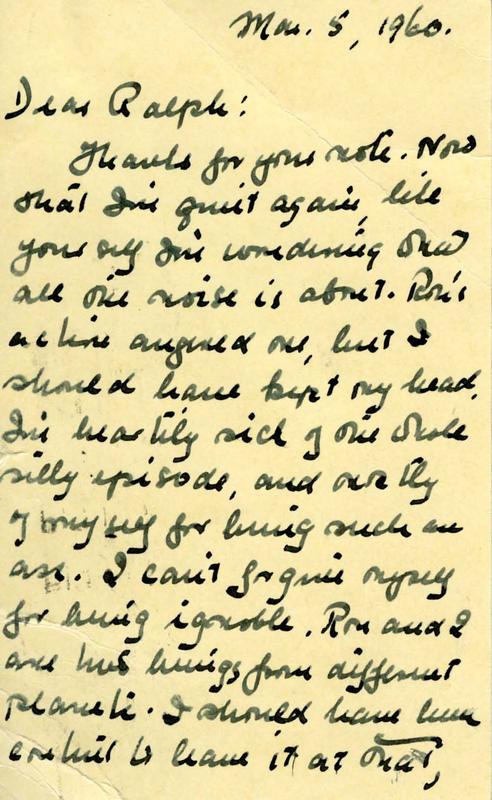 Mar. 5, 1960.
Dear Ralph:
Thanks for your note. Now
that I'm quit again, like
yourself I'm wondering what
all the noise is about. Ron's
action angered me, but I
should have kept my head.
I'm heartily sick of the whole
silly episode, and mostly
of myself for being such an
ass. I can't forgive myself
for being ignoble. Ron and I
are two beings from different
planets. I should have been
content to leave it at that,